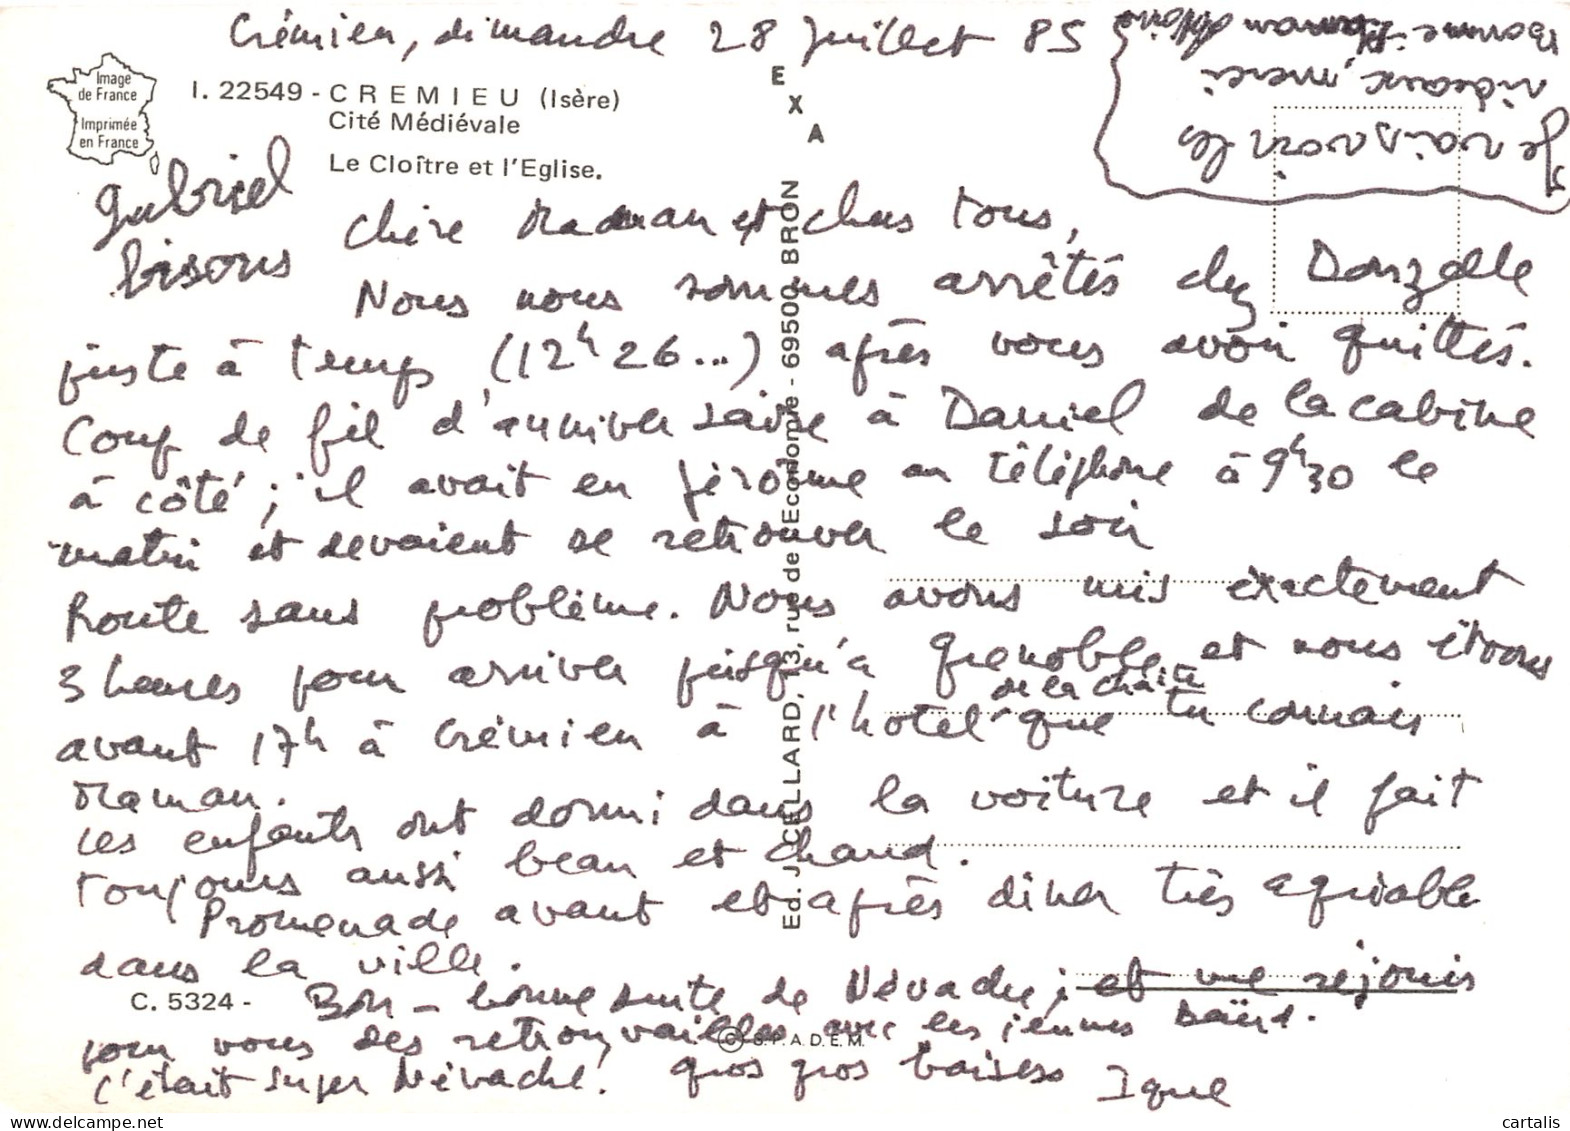 Crémieu, dimanche 28 Juillet 85
Image
de France
Imprimée
en France
I. 22549 - CREMIEU (Isère)
Cité Médiévale
Le Cloître et l'Eglise.
EXA
Je vais voir les
rideaux, merci
Bonne Maman
Gabriel
bisous
Chère Maman et chers tous,
Nous nous sommes arrêtés chez Donzelle
juste à temps (12h26...) après vous avoir quittés.
Coup de fil d'anniversaire à Daniel de la cabine
à côté ; il avait eu Jérôme au téléphone à 9h30 le
matin et devaient se retrouver le soir
Route sans problème. Nous avons mis exactement
3 heures pour arriver jusqu'à Grenoble et nous étions
avant 17h à Crémieu à l'hotel de la chaite que tu connais
Maman.
Les enfants ont dormi dans la voiture et il fait
toujours aussi beau et chaud.
Promenade avant et après diner très agréable
dans la ville.
Bon - bonne suite de Névache ; et me réjouis
pour vous des retrouvailles avec les jeunes
C'était super Névache. gros gros baisers Ique
C. 5324 -
Ed. J. CELLARD, 13, rue de l'Economie - 69500 BRON
© S.P.A.D.E.M.
cartalis